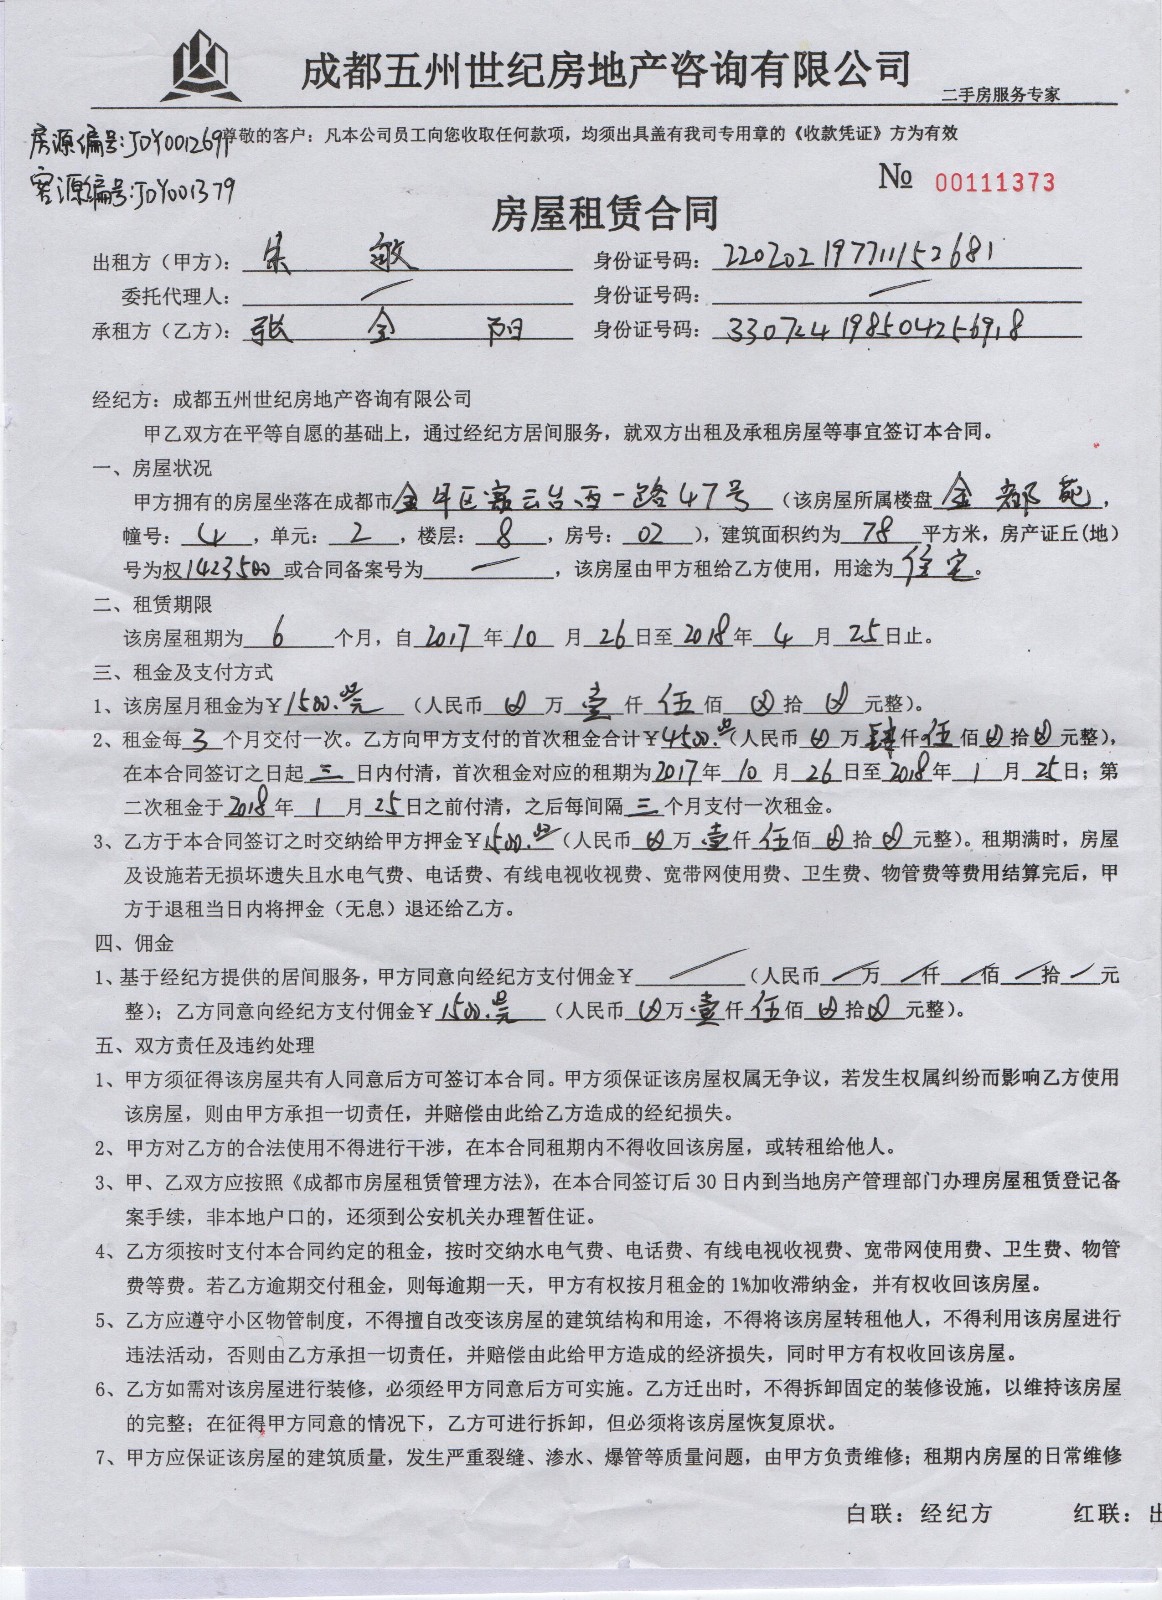 成都五州世纪房地产咨询有限公司
二手房服务专家
房源编号:JDY0012691
尊敬的客户：凡本公司员工向您收取任何款项，均须出具盖有我司专用章的《收款凭证》方为有效
客源编号:JDY001379
№ 00111373
房屋租赁合同
出租方（甲方）： 敏 身份证号码：220202197711152681
委托代理人： / 身份证号码： /
承租方（乙方）：张金阳 身份证号码：330724198504256918
经纪方：成都五州世纪房地产咨询有限公司
甲乙双方在平等自愿的基础上，通过经纪方居间服务，就双方出租及承租房屋等事宜签订本合同。
一、房屋状况
甲方拥有的房屋坐落在成都市金牛区 云台西一路47号（该房屋所属楼盘金都苑，
幢号：4，单元：2，楼层：8，房号：02），建筑面积约为78平方米，房产证丘(地)
号为权1423500或合同备案号为 / ，该房屋由甲方租给乙方使用，用途为住宅。
二、租赁期限
该房屋租期为6个月，自2017年10月26日至2018年4月25日止。
三、租金及支付方式
1、该房屋月租金为￥1500.元（人民币 万壹仟伍佰 拾 元整）。
2、租金每3个月交付一次。乙方向甲方支付的首次租金合计￥4500.元（人民币 万肆仟伍佰 拾 元整），
在本合同签订之日起三日内付清，首次租金对应的租期为2017年10月26日至2018年1月25日；第
二次租金于2018年1月25日之前付清，之后每间隔三个月支付一次租金。
3、乙方于本合同签订之时交纳给甲方押金￥1500.（人民币 万壹仟伍佰 拾 元整）。租期满时，房屋
及设施若无损坏遗失且水电气费、电话费、有线电视收视费、宽带网使用费、卫生费、物管费等费用结算完后，甲
方于退租当日内将押金（无息）退还给乙方。
四、佣金
1、基于经纪方提供的居间服务，甲方同意向经纪方支付佣金￥ / （人民币 / 万 / 仟 / 佰 / 拾 / 元
整）；乙方同意向经纪方支付佣金￥1500.元（人民币 万壹仟伍佰 拾 元整）。
五、双方责任及违约处理
1、甲方须征得该房屋共有人同意后方可签订本合同。甲方须保证该房屋权属无争议，若发生权属纠纷而影响乙方使用
该房屋，则由甲方承担一切责任，并赔偿由此给乙方造成的经纪损失。
2、甲方对乙方的合法使用不得进行干涉，在本合同租期内不得收回该房屋，或转租给他人。
3、甲、乙双方应按照《成都市房屋租赁管理方法》，在本合同签订后30日内到当地房产管理部门办理房屋租赁登记备
案手续，非本地户口的，还须到公安机关办理暂住证。
4、乙方须按时支付本合同约定的租金，按时交纳水电气费、电话费、有线电视收视费、宽带网使用费、卫生费、物管
费等费。若乙方逾期交付租金，则每逾期一天，甲方有权按月租金的1%加收滞纳金，并有权收回该房屋。
5、乙方应遵守小区物管制度，不得擅自改变该房屋的建筑结构和用途，不得将该房屋转租他人，不得利用该房屋进行
违法活动，否则由乙方承担一切责任，并赔偿由此给甲方造成的经济损失，同时甲方有权收回该房屋。
6、乙方如需对该房屋进行装修，必须经甲方同意后方可实施。乙方迁出时，不得拆卸固定的装修设施，以维持该房屋
的完整；在征得甲方同意的情况下，乙方可进行拆卸，但必须将该房屋恢复原状。
7、甲方应保证该房屋的建筑质量，发生严重裂缝、渗水、爆管等质量问题，由甲方负责维修；租期内房屋的日常维修
白联：经纪方 红联：出